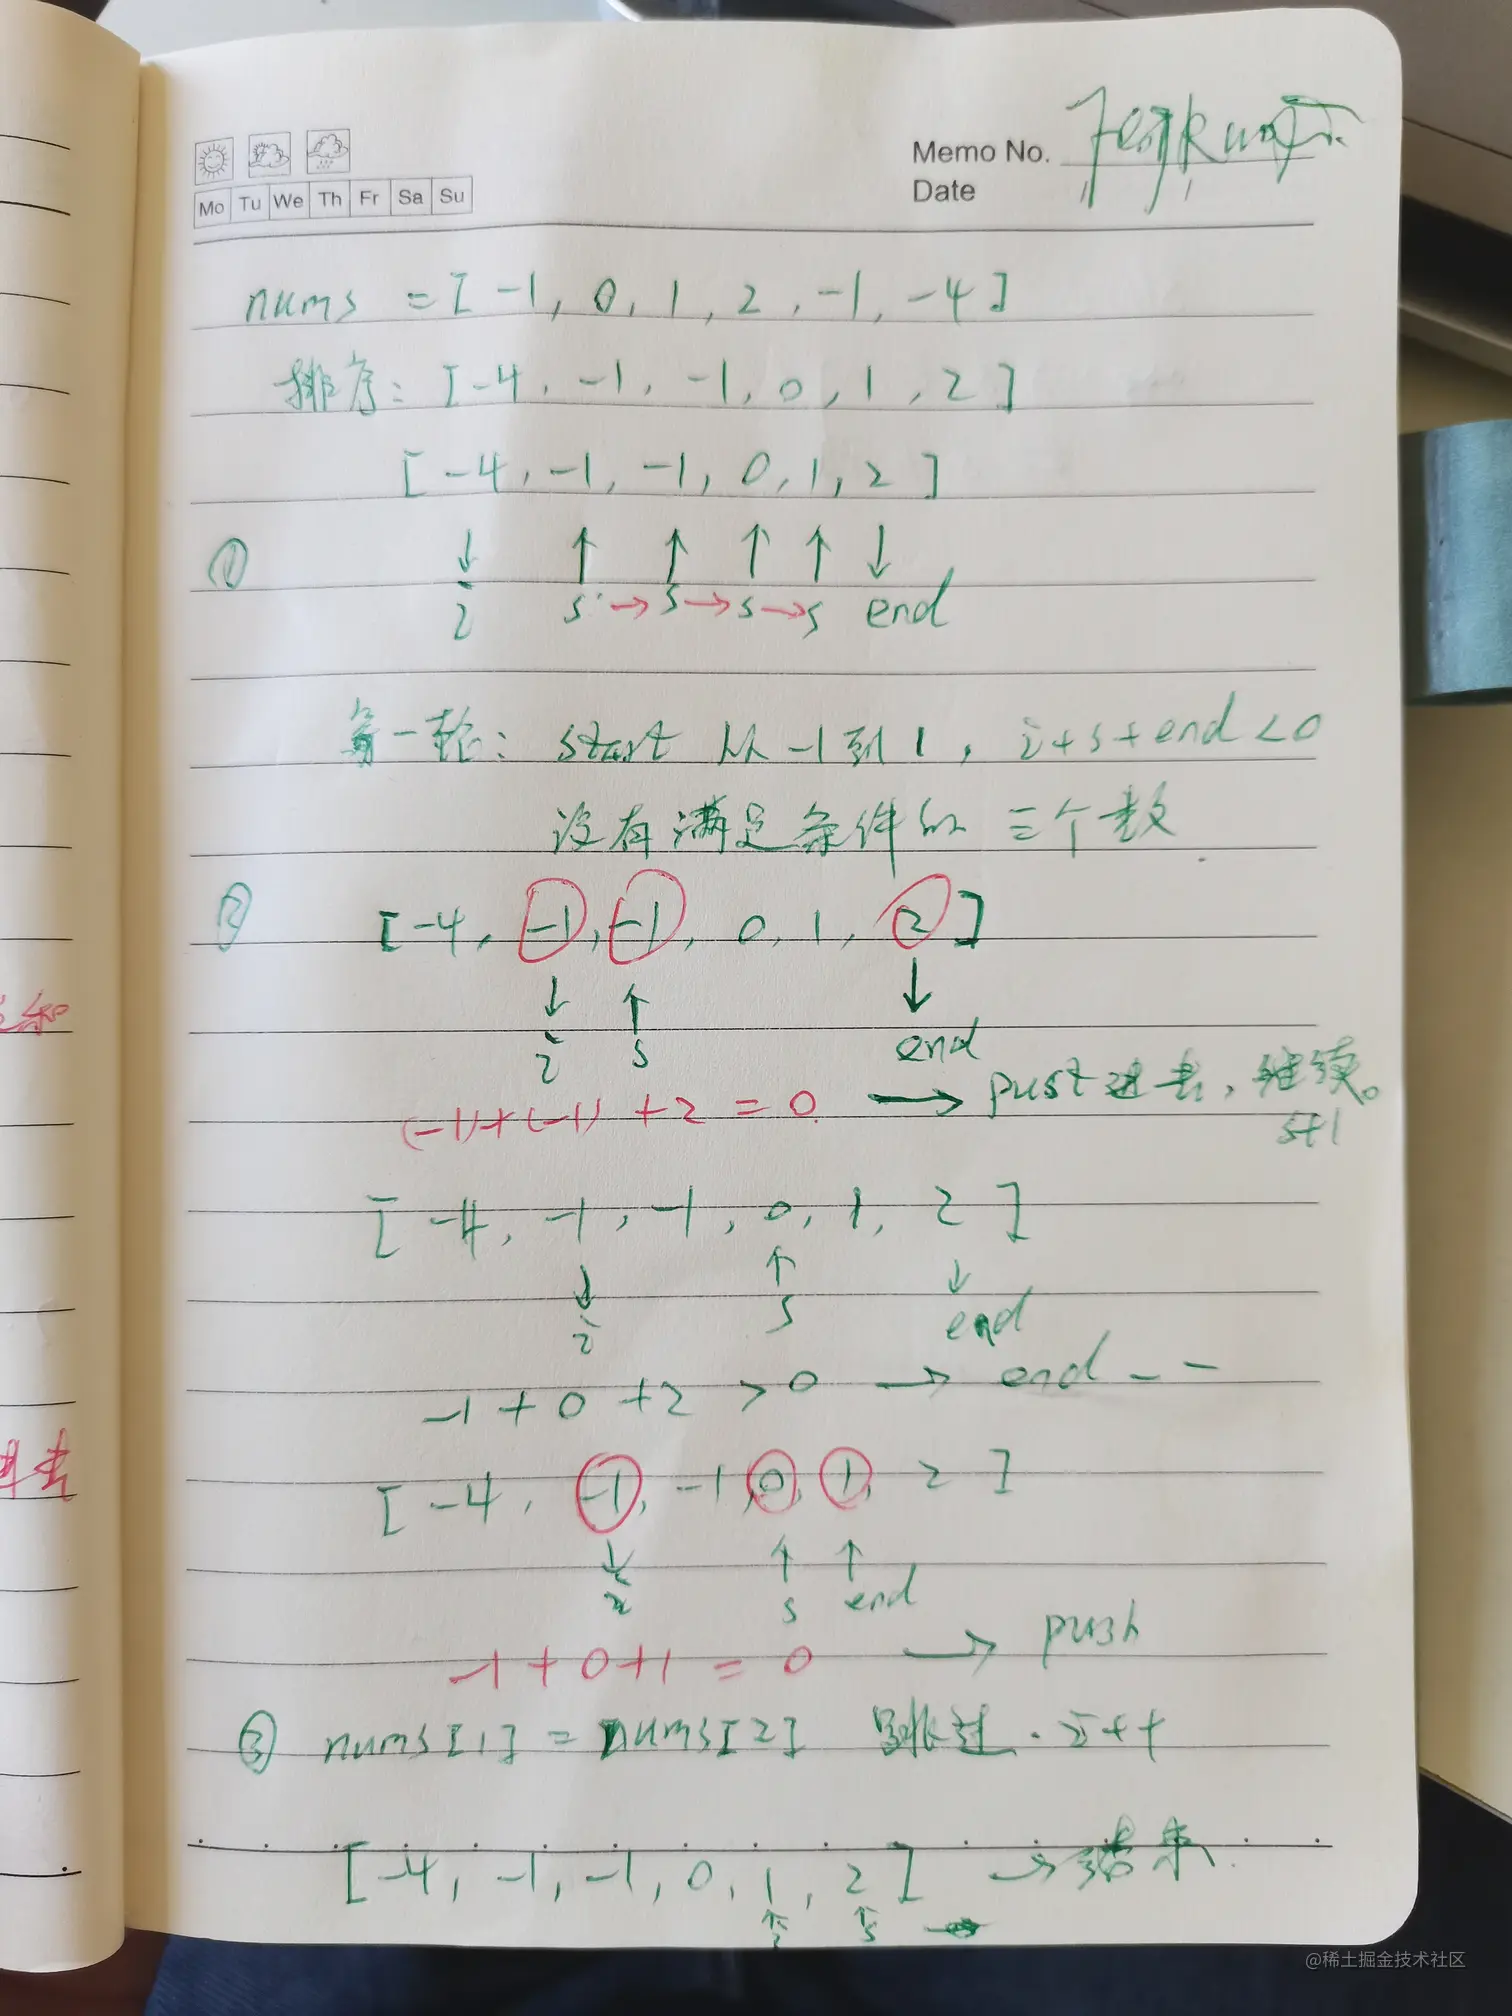 Mo Tu We Th Fr Sa Su
Memo No.
Date
nums = [ -1, 0, 1, 2, -1, -4 ]
排序: [ -4, -1, -1, 0, 1, 2 ]
[ -4, -1, -1, 0, 1, 2 ]
① ↓ ↑ ↑ ↑ ↑ ↓
i s → s → s → s end
第一轮: start 从 -1 到 1, i+s+end<0
没有满足条件的 三个数
② [ -4, -1, -1, 0, 1, 2 ]
↓ ↑ ↓
i s end
(-1)+(-1) +2 = 0 → pust 进去, 继续。
s+1
[ -4, -1, -1, 0, 1, 2 ]
↑ ↓
↓ s end
i
-1 + 0 + 2 > 0 → end --
[ -4, -1, -1, 0, 1, 2 ]
↓ ↑ ↑
i s end
-1 + 0 + 1 = 0 → push
③ nums[1] = nums[2] 跳过. i++
[ -4, -1, -1, 0, 1, 2 ] → 结束.
↑ ↑
i s
和
进去
@稀土掘金技术社区